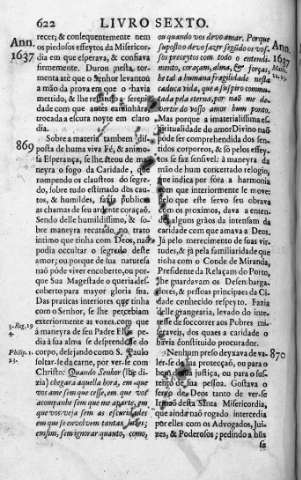 622 LIVRO SEXTO.
Ann.
1637
recer; & conſequentemente nem
os piedoſos effeytos da Miſericor-
dia em que eſperava, & confiava
firmemente. Durou neſta tor-
menta atè que o Senhor levantou
a mão da prova em que o havia
mettido, & lhe reſtituìo a ſereni-
dade com que antes caminhava
trocada a eſcura noyte em claro
dia.
869
Sobre a materia tambem diſ-
poſta de huma viva Fé, & animo-
ſa Eſperança, ſe lhe ateou de ma-
neyra o fogo da Caridade, que
rompendo os clauſtros do ſegre-
do, ſobre tudo eſtimado dos cau-
tos, & humildes, fazia publicas
as chamas de ſeu amante coraçaõ.
Sendo delle humildiſſimo, & ſo-
bre maneyra recatado no trato
intimo que tinha com Deos, naõ
podia occultar o ſegredo deſte
amor; ou porque de ſua natureſa
naõ póde viver encoberto, ou por-
que Sua Mageſtade o queria deſ-
coberto para mayor gloria ſua.
Das praticas interiores que tinha
com o Senhor, ſe lhe percebiam
exteriormente as vozes com que
3. Reg. 19
4.
à maneyra de ſeu Padre Elias pe-
dia á ſua alma ſe deſprendeſſe do
Philip. 1.
23.
corpo, deſejando com S. Paulo
ſoltarſe da carne, por ver-ſe com
Chriſto: Quando Senhor (lhe di-
zia) chegará aquella hora, em que
vos ame ſem que ceſſe, em que vos
acompanhe ſem que me aparte, em
que vos veja ſem as eſcuridades
em que ſe envolvem tantas luzes;
enſim, ſem ignorar quanto, como,
ou quando vos devo amar. Porque
ſuppoſto o devo fazer ſegũdo os voſ-
ſos preceytos com todo o entendi-
mento, coraçam, alma, & forças,
he tal a humana fragilidade neſta
caduca vida, que a ſuſpiro commu-
tada pela eterna, por naõ me di-
vertir do voſſo amor hum ponto.
Ann.
1637
Mas porque a immaterialiſſima eſ-
piritualidade do amor Divino naõ
póde ſer comprehendida dos ſen-
tidos corporeos, & ſó pelos effey-
tos ſe faz ſenſivel: à maneyra da
mão de hum concertado relogio,
que indica por fóra a harmonia
com que interiormente ſe move:
pelo que eſte ſervo ſeu obrava
com os proximos, dava a enten-
der algum gráos da intenſam da
caridade com que amava a Deos.
Já pelo merecimento de ſuas vir-
tudes, & já pela familiaridade que
tinha com o Conde de Miranda,
Preſidente da Relaçam do Porto,
lhe guardavam os Deſembarga-
dores, & peſſoas principaes da Ci-
dade conhecido reſpeyto. Fazia
delle grangearia, levado do inte-
reſſe de ſoccorrer aos Pobres mi-
ſeraveis, dos quaes a caridade o
havia conſtituido procurador.
870
Nenhum preſo deyxava de va-
ler-ſe de ſua protecçaõ, ou para o
bom de ſua juſtiça, ou para o ſuſ-
tento de ſua peſſoa. Goſtava o
ſervo de Deos tanto de ver-ſe
Irmaõ deſta Santa Miſericordia,
que ainda naõ rogado intercedia
por elles com os Advogados, Jui-
zes, & Poderoſos; pedindo a huns